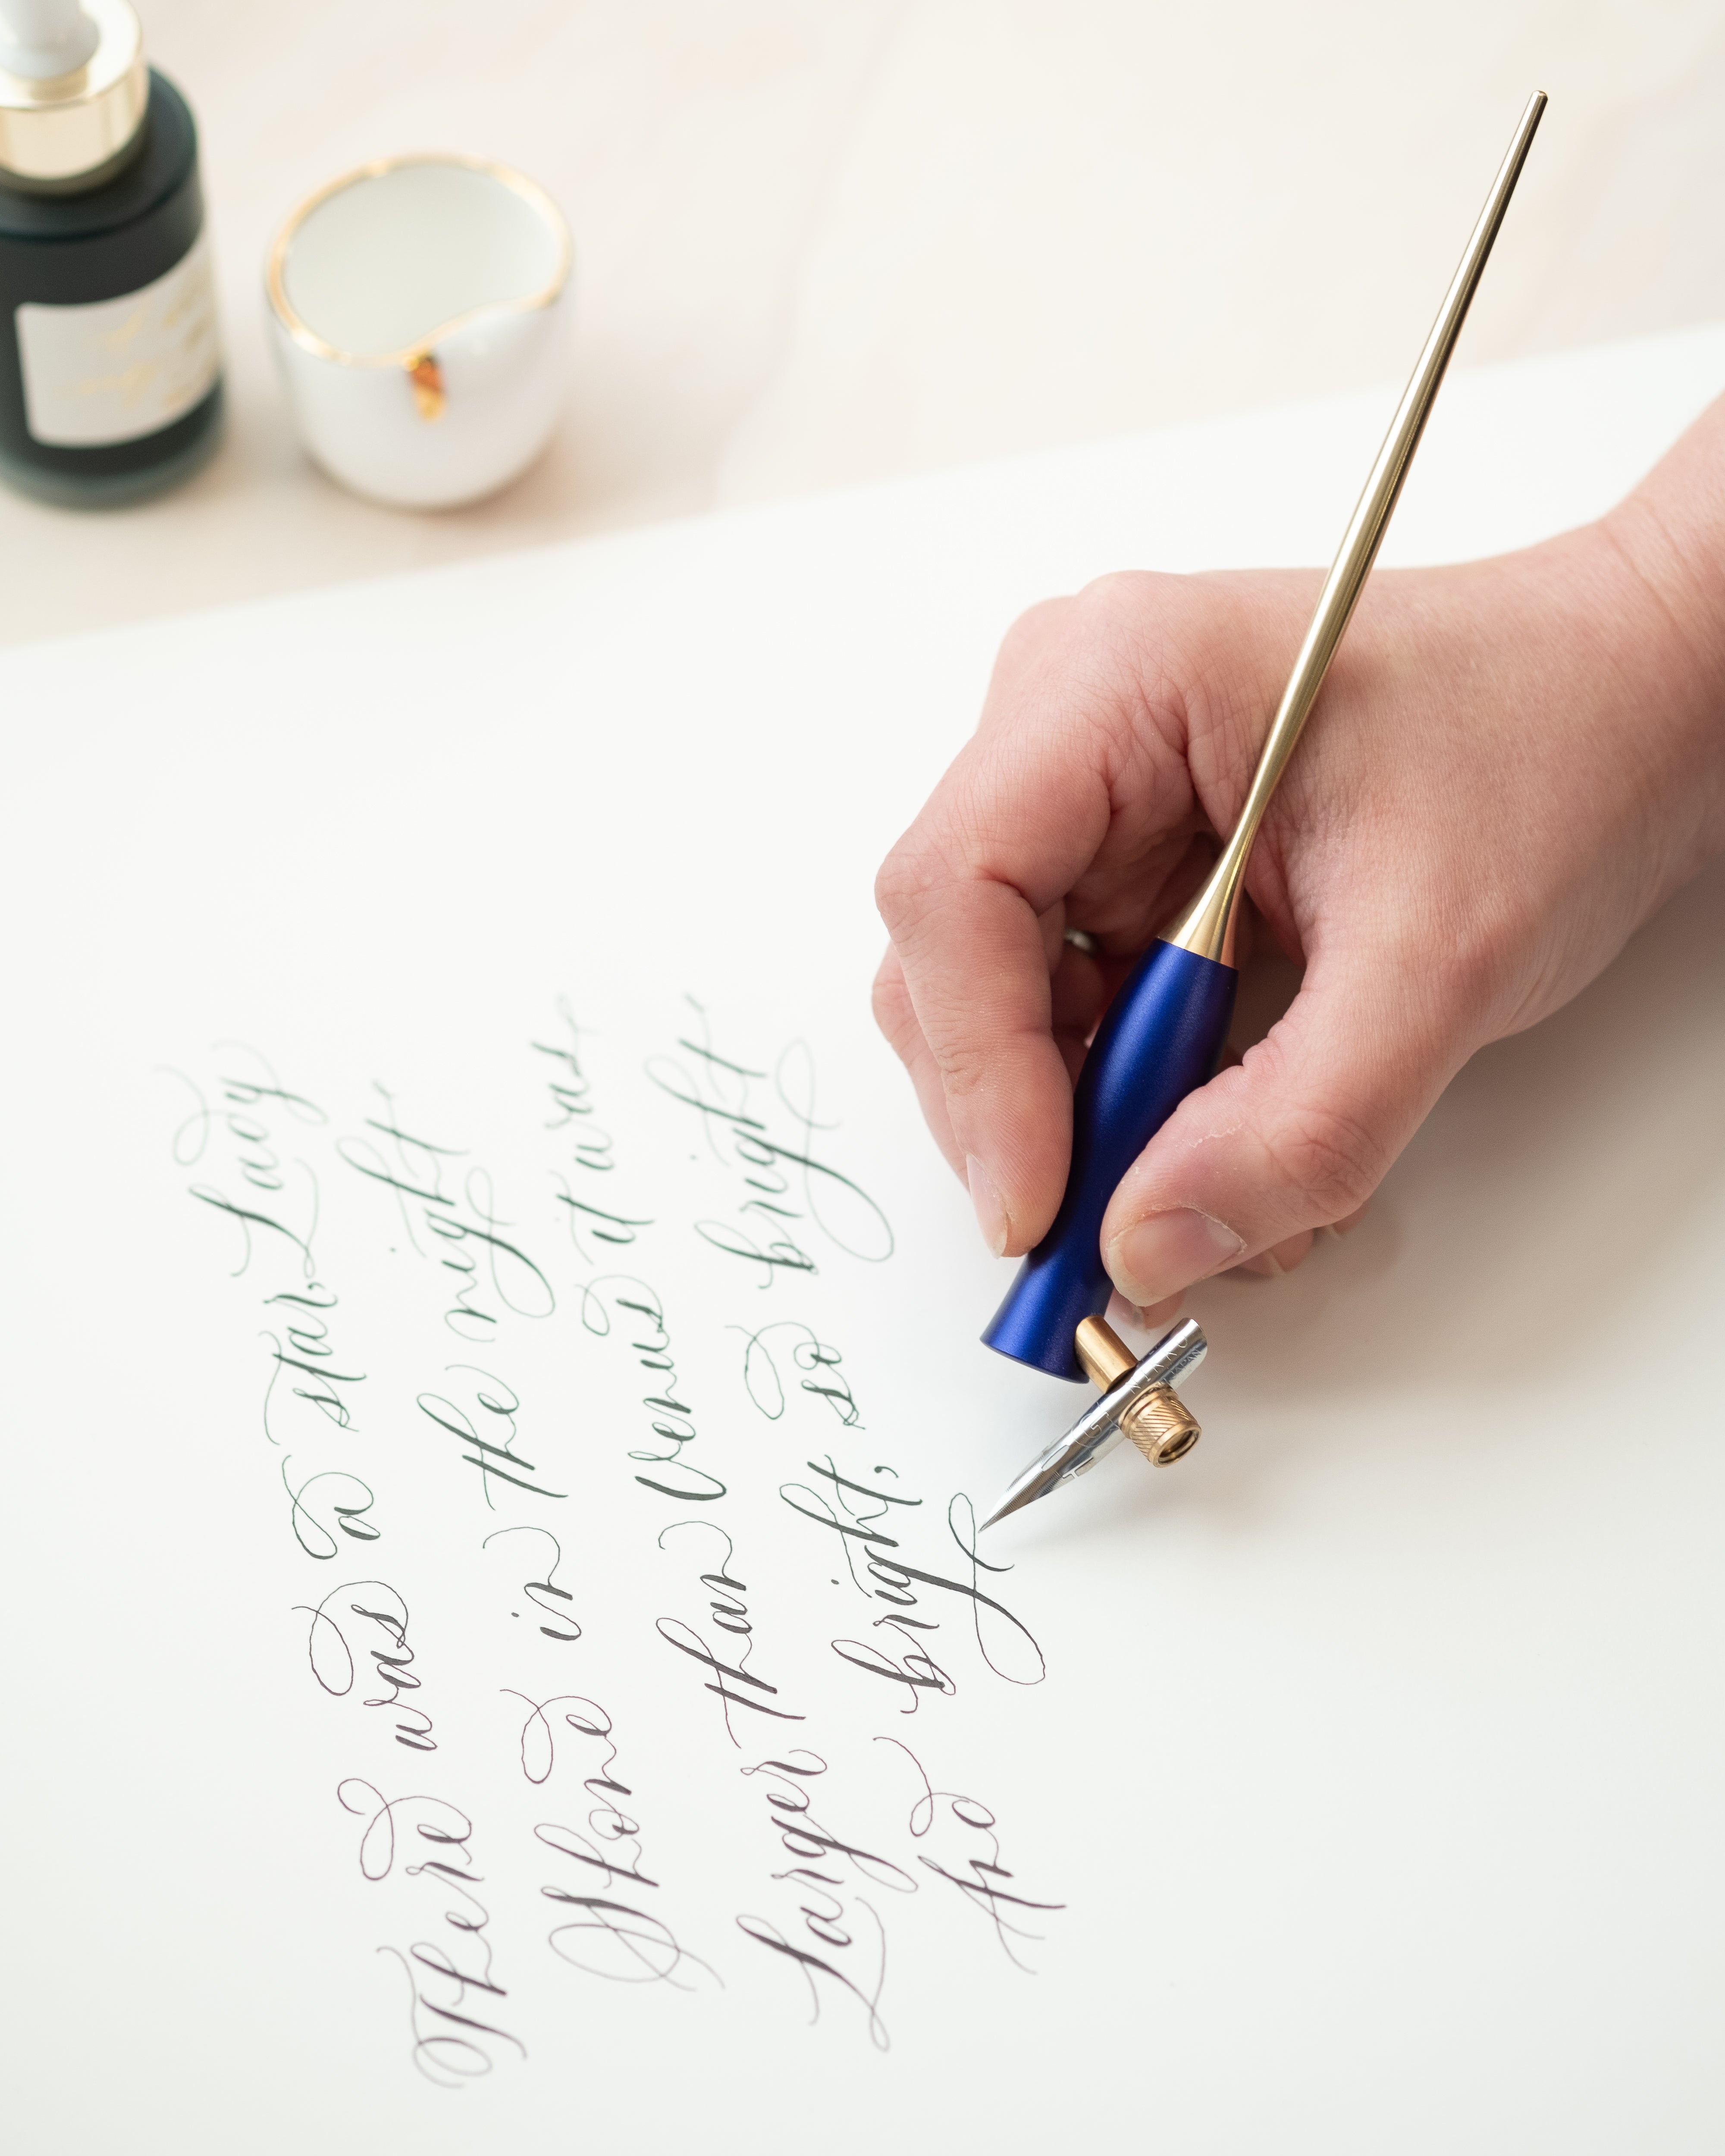 There was a star, Lady
Shone in the night
Larger than Venus it was
the bright, so bright